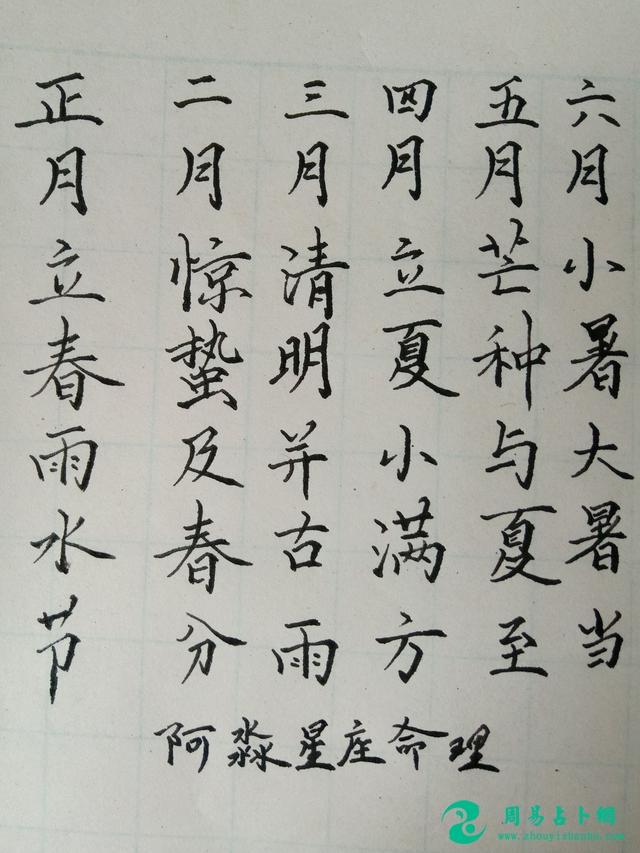 正月立春雨水节
二月惊蛰及春分
三月清明并古雨
四月立夏小满方
五月芒种与夏至
六月小暑大暑当
阿淼星座命理
周易占卜網
www.zhouyizhanbu.com